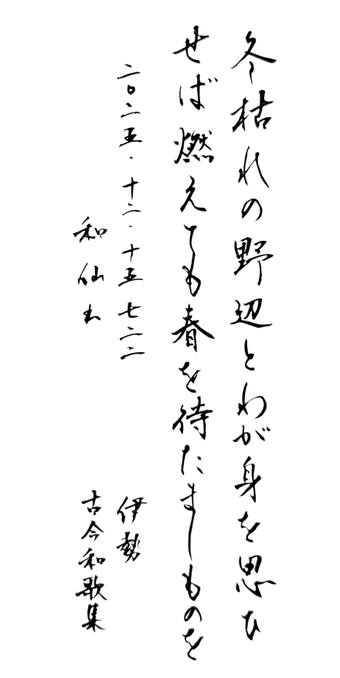 冬枯れの野辺とわが身を思ひ
せば燃えても春を待たましものを
二〇二五・十二・十五 七二二
和仙出
伊勢
古今和歌集